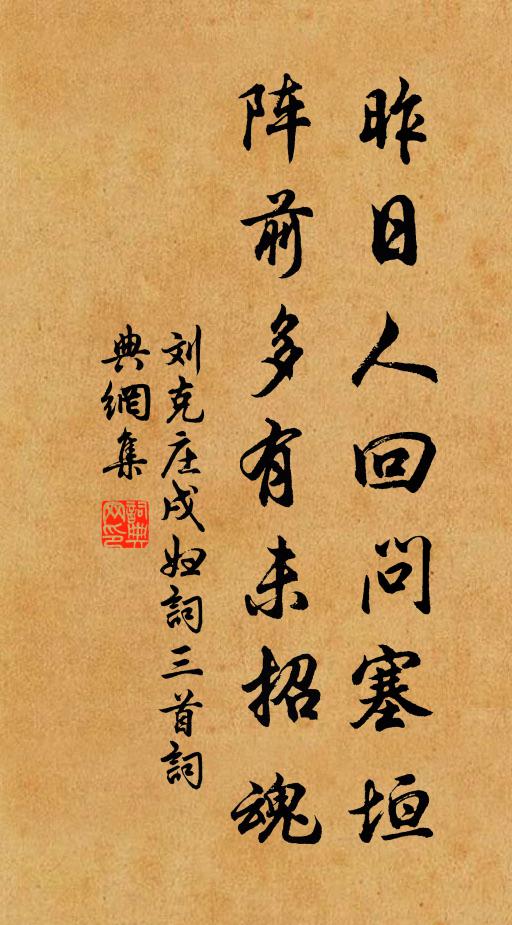 昨日人回问塞垣
阵前多有未招魂
刘克庄戍妇詞三首詞
典網集
詞典网印